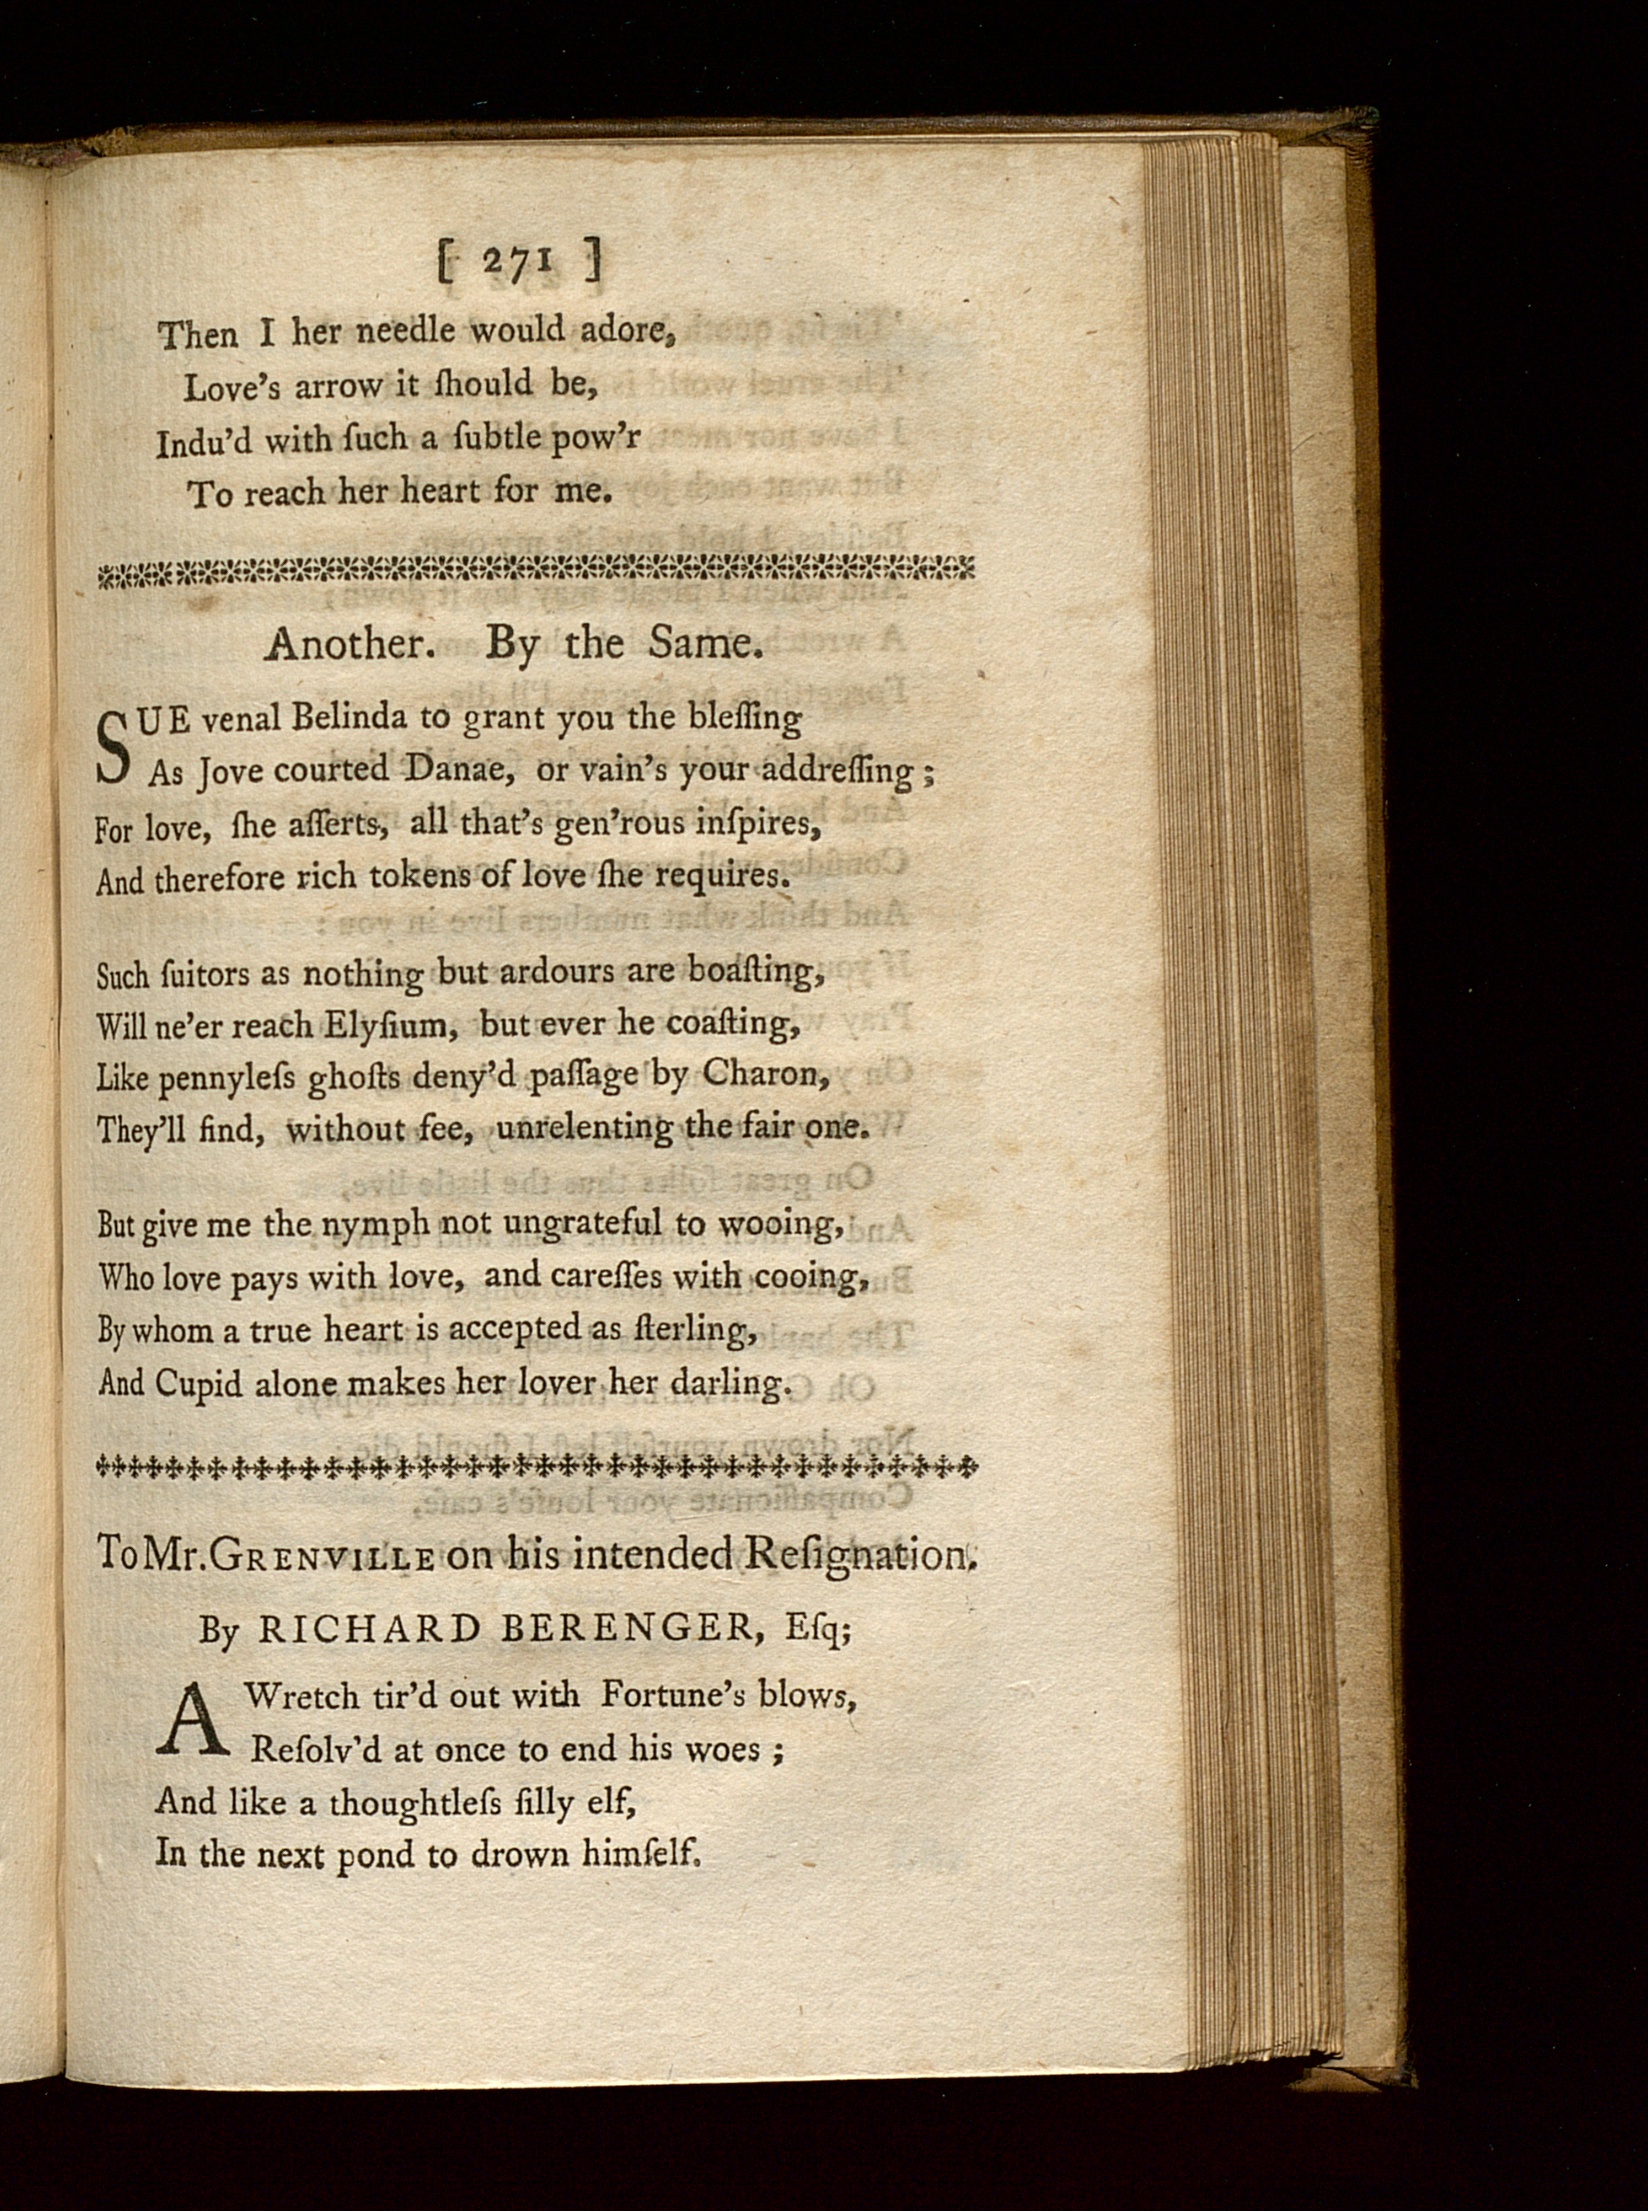 [ 271 ]
Then I her needle would adore,
Love's arrow it ſhould be,
Indu'd with ſuch a ſubtle pow'r
To reach her heart for me.
Another. By the Same.
SUE venal Belinda to grant you the bleſſing
As Jove courted Danae, or vain's your addreſſing;
For love, ſhe aſſerts, all that's gen'rous inſpires,
And therefore rich tokens of love ſhe requires.
Such ſuitors as nothing but ardours are boaſting,
Will ne'er reach Elyſium, but ever he coaſting,
Like pennyleſs ghoſts deny'd paſſage by Charon,
They'll find, without fee, unrelenting the fair one.
But give me the nymph not ungrateful to wooing,
Who love pays with love, and careſſes with cooing,
By whom a true heart is accepted as ſterling,
And Cupid alone makes her lover her darling.
To Mr. GRENVILLE on his intended Reſignation.
By RICHARD BERENGER, Eſq;
A Wretch tir'd out with Fortune's blows,
Reſolv'd at once to end his woes;
And like a thoughtleſs ſilly elf,
In the next pond to drown himſelf.